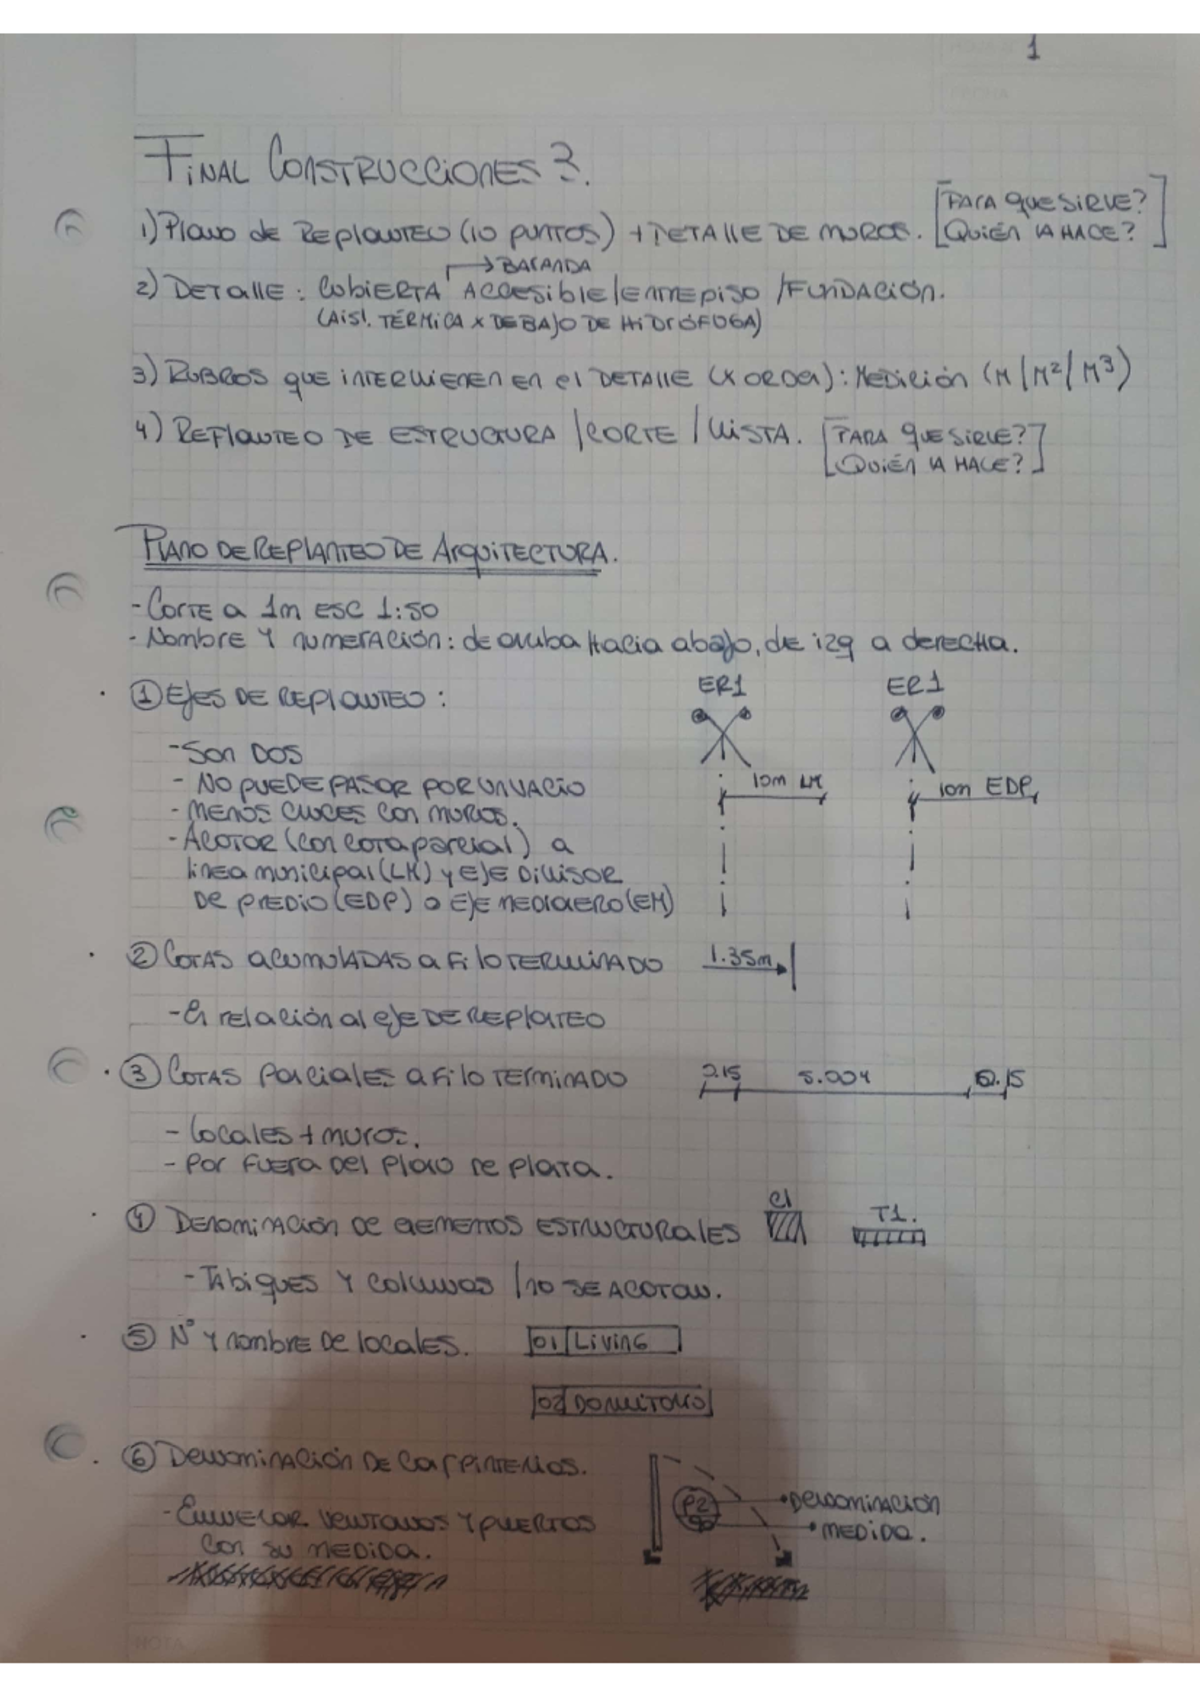 1
FINAL CONSTRUCCIONES 3.
1) Plano de Replanteo (10 puntos) + DETALLE DE MUROS. [PARA QUE SIRVE?
[QUIÉN LA HACE?]
→ BARANDA
2) DETALLE: CUBIERTA ACCESIBLE/ENTREPISO/FUNDACIÓN.
(AISL. TÉRMICA X DEBAJO DE HIDRÓFUGA)
3) RUBROS que INTERVIENEN EN el DETALLE (X ORDEN): MEDICIÓN (M/M²/M³)
4) REPLANTEO DE ESTRUCTURA/CORTE/VISTA. [PARA QUE SIRVE?]
[QUIÉN LA HACE?]
PLANO DE REPLANTEO DE ARQUITECTURA.
- CORTE a 1m ESC 1:50
- Nombre Y numeración: de arriba Hacia abajo, de izq a derecha.
① Ejes DE REPLANTEO: ER1 ER1
- Son DOS
- NO PUEDE PASAR POR UN VACIO 10m LM 10m EDP
- MENOS CRUCES con MUROS.
- ACOTAR (con cota parcial) a
línea municipal (LM) y EJE DIVISOR
DE PREDIO (EDP) o EJE MEDIANERO (EM)
② COTAS acumuLADAS a FiLo TERMINADO 1.35m
- En relación al eje DE REPLANTEO
③ COTAS PARCIALES a FiLo TERMINADO 0.15 5.00 0.15
- Locales + muros.
- Por FUERA DEL PLANO DE PLANTA.
④ DENOMINACIÓN DE ELEMENTOS ESTRUCTURALES C1 T1.
- TABIQUES Y COLUMNAS / NO SE ACOTAN.
⑤ N° Y nombre DE locales. 01 LIVING
02 DORMITORIO
⑥ DENOMINACIÓN DE CARPINTERIAS.
- ENUMERAR VENTANAS Y PUERTAS P2 DENOMINACIÓN
Con SU MEDIDA. 90 MEDIDA.